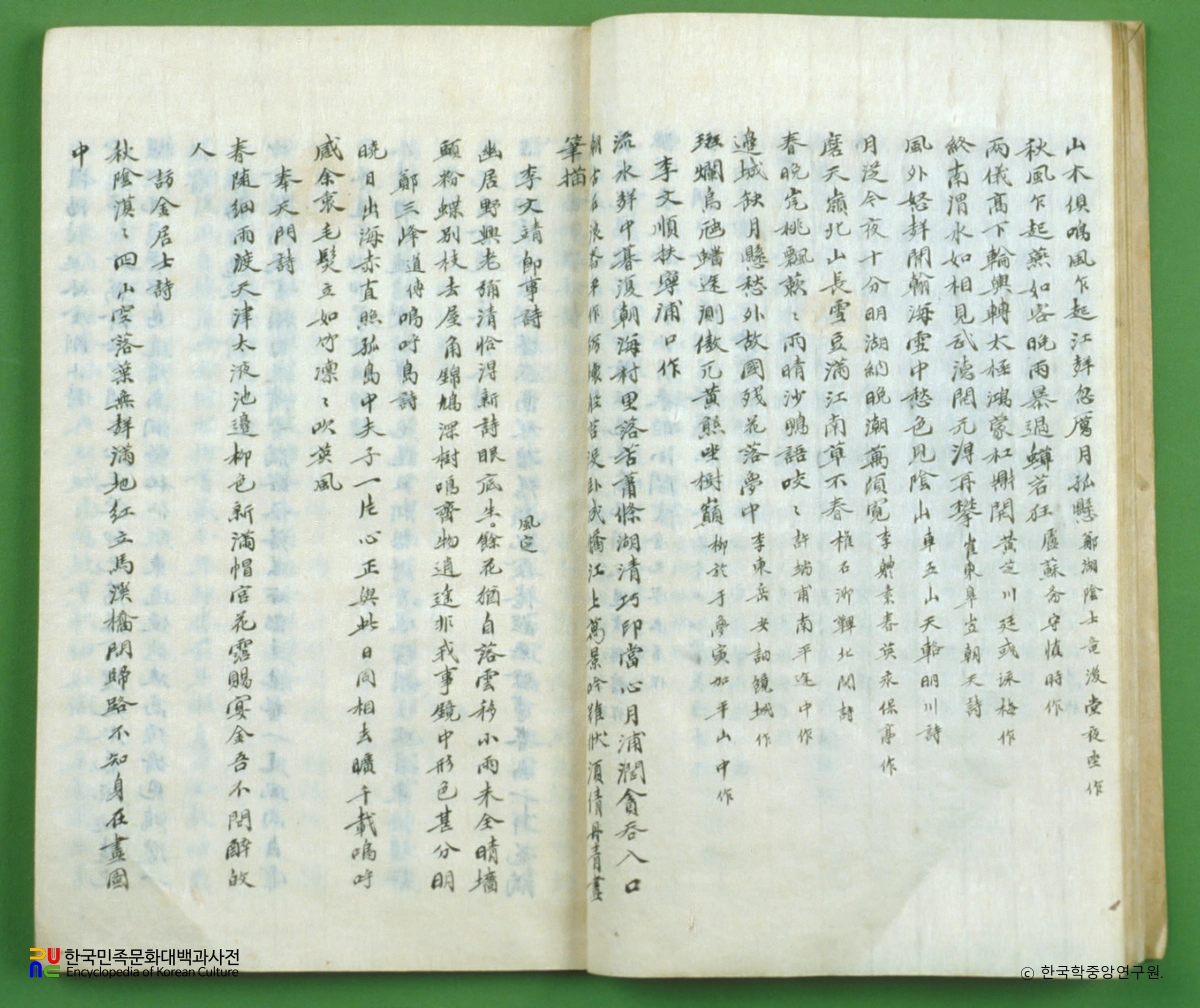 山木俱鳴風乍起江聲忽厲月孤懸 鄭湖陰士竜後臺夜坐作
秋風乍起燕如客晚雨暴過蟬若狂 盧蘇齋守愼時作
兩儀高下輪輿轉太極鴻蒙杠軸開 黃芝川廷彧詠梅作
終南渭水如相見武德開元得再攀 崔東皐岦朝天詩
風外怒聲聞翰海雪中愁色見陰山 車五山天輅明川詩
月從今夜十分明湖納晚潮萬頃寬 李體素春英永保亭作
磨天嶺北山長雪豆滿江南草不春 權石洲鞸北關詩
春晚宮桃飄蔌ミ雨晴沙鴨語咬ミ 許端甫南平途中作
邊城缺月懸愁外故國殘花落夢中 李東岳安訥鏡城作
斑爛烏 蟠 測傲兀黃熊坐樹巓 柳於于夢寅加平山中作
李文順扶寧浦口作
流水聲中暮復朝海村里落苦蕭條湖清巧印當心月浦闊貪吞入口
筆描
李文靖卽事詩
幽居野興老彌清恰得新詩眼底生。風定餘花猶自落雲移小雨未全晴墻
頭粉蝶別枝去屋角錦鳩深樹鳴齊物逍遙非我事鏡中形色甚分明
鄭三峰道傳嗚呼島詩
曉日出海赤直照孤島中夫子一片心正與此日同相去曠千載嗚呼
感余衷毛髮立如竹凛ミ吹英風
奉天門詩
春隨細雨渡天津太液池邊柳色新滿帽宮花霑賜宴金吾不問醉歸
人
訪金居士詩
秋陰漠ミ四山空落葉無聲滿地紅立馬溪橋問歸路不知身在畫圖
中
한국민족문화대백과사전
Encyclopedia of Korean Culture
© 한국학중앙연구원.